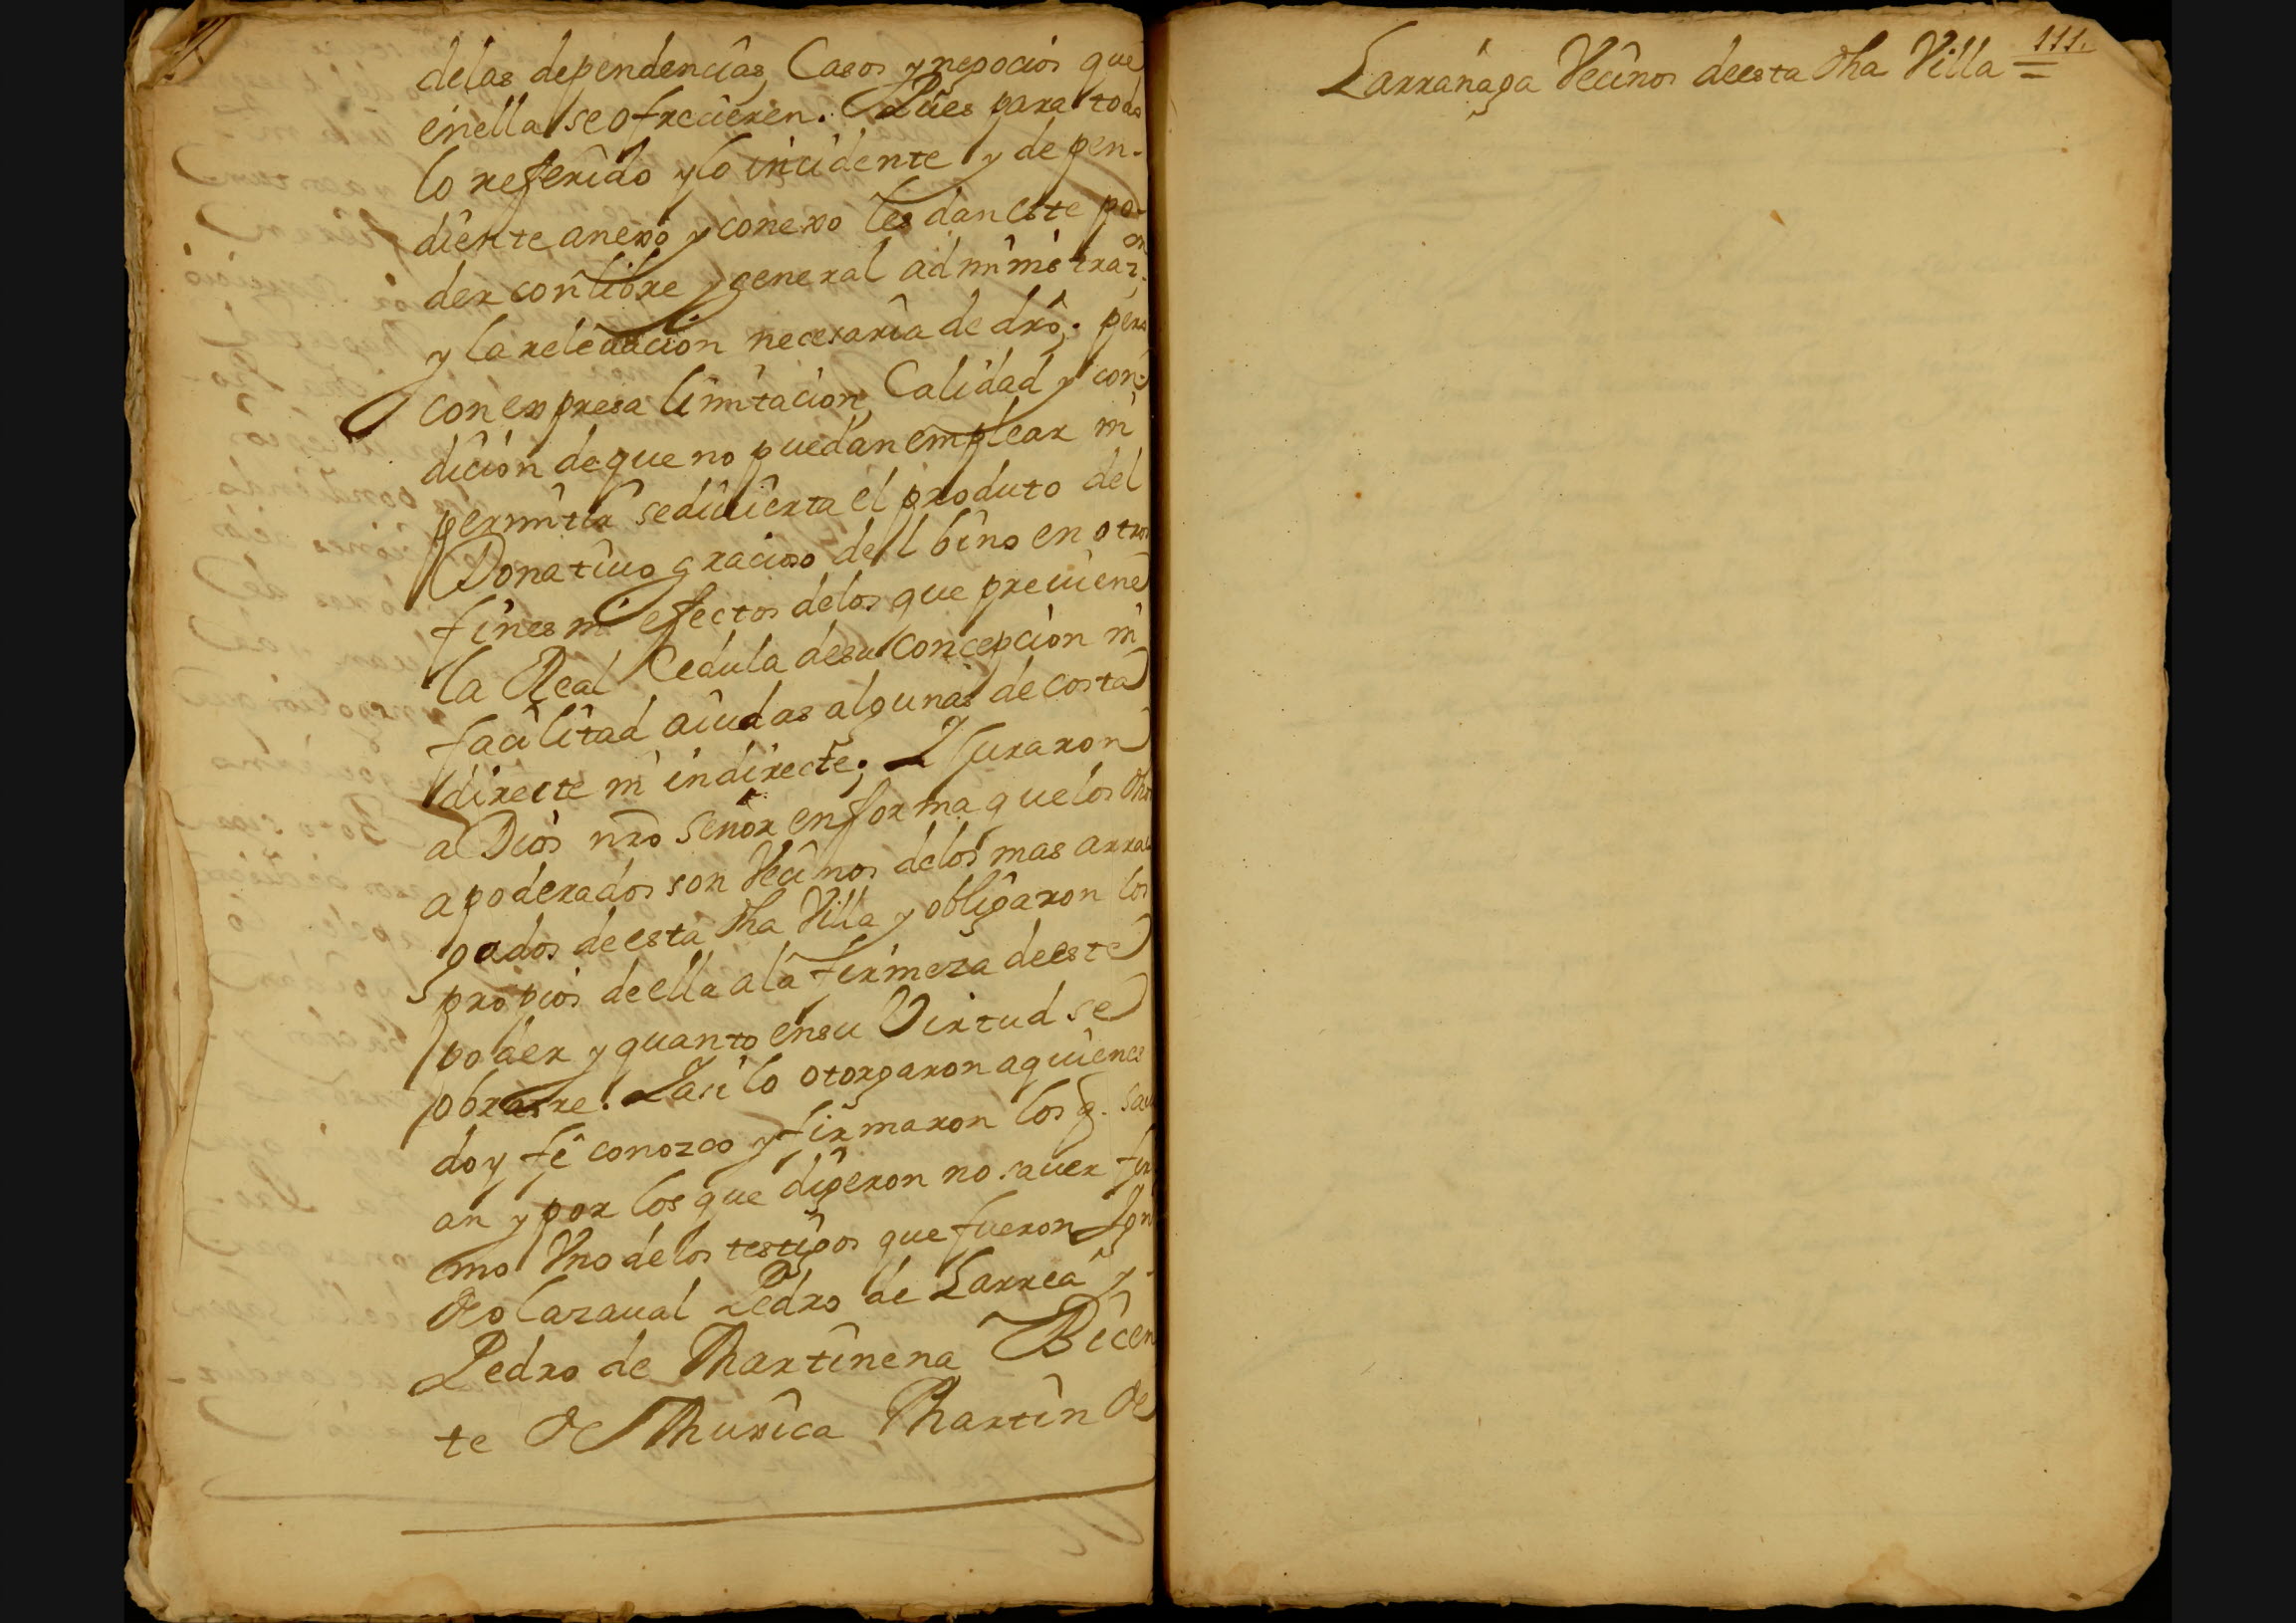 delas dependencias, Casos y negocios que
enella se ofrecieren. Pues para todo
lo referido y lo incidente y depen-
diente anexo y conexo les dan este po-
der con libre y general administraz.on
y la relebacion necesaria de dro. pero
con expresa limitacion, Calidad y con-
dicion de que no puedan emplear ni
permitir se diuierta el produto del
Donatiuo gracioso del bino en otros
fines ni efectos delos que preuiene
la Real Cedula desu concepcion ni
facilitad aiudas algunas de costa
directe ni indirecte. Y Juraron
a Dios nro señor en forma que los dhos
apoderados son Vecinos delos mas arrai
gados de esta dha Villa y obligaron los
propios de ella ala firmeza de este
poder y quanto ensu Virtud se
obrare. Y asi lo otorgaron a quienes
doy fe conozco y firmaron los q. sau
an y por los que digeron no sauer fir
mo Vno delos testigos que fueron Ign
de olazaual Pedro de Larrea y
Pedro de Martinena Bicen
te de Muxica Martin de
111.
Larrañaga Vecinos de esta dha Villa =